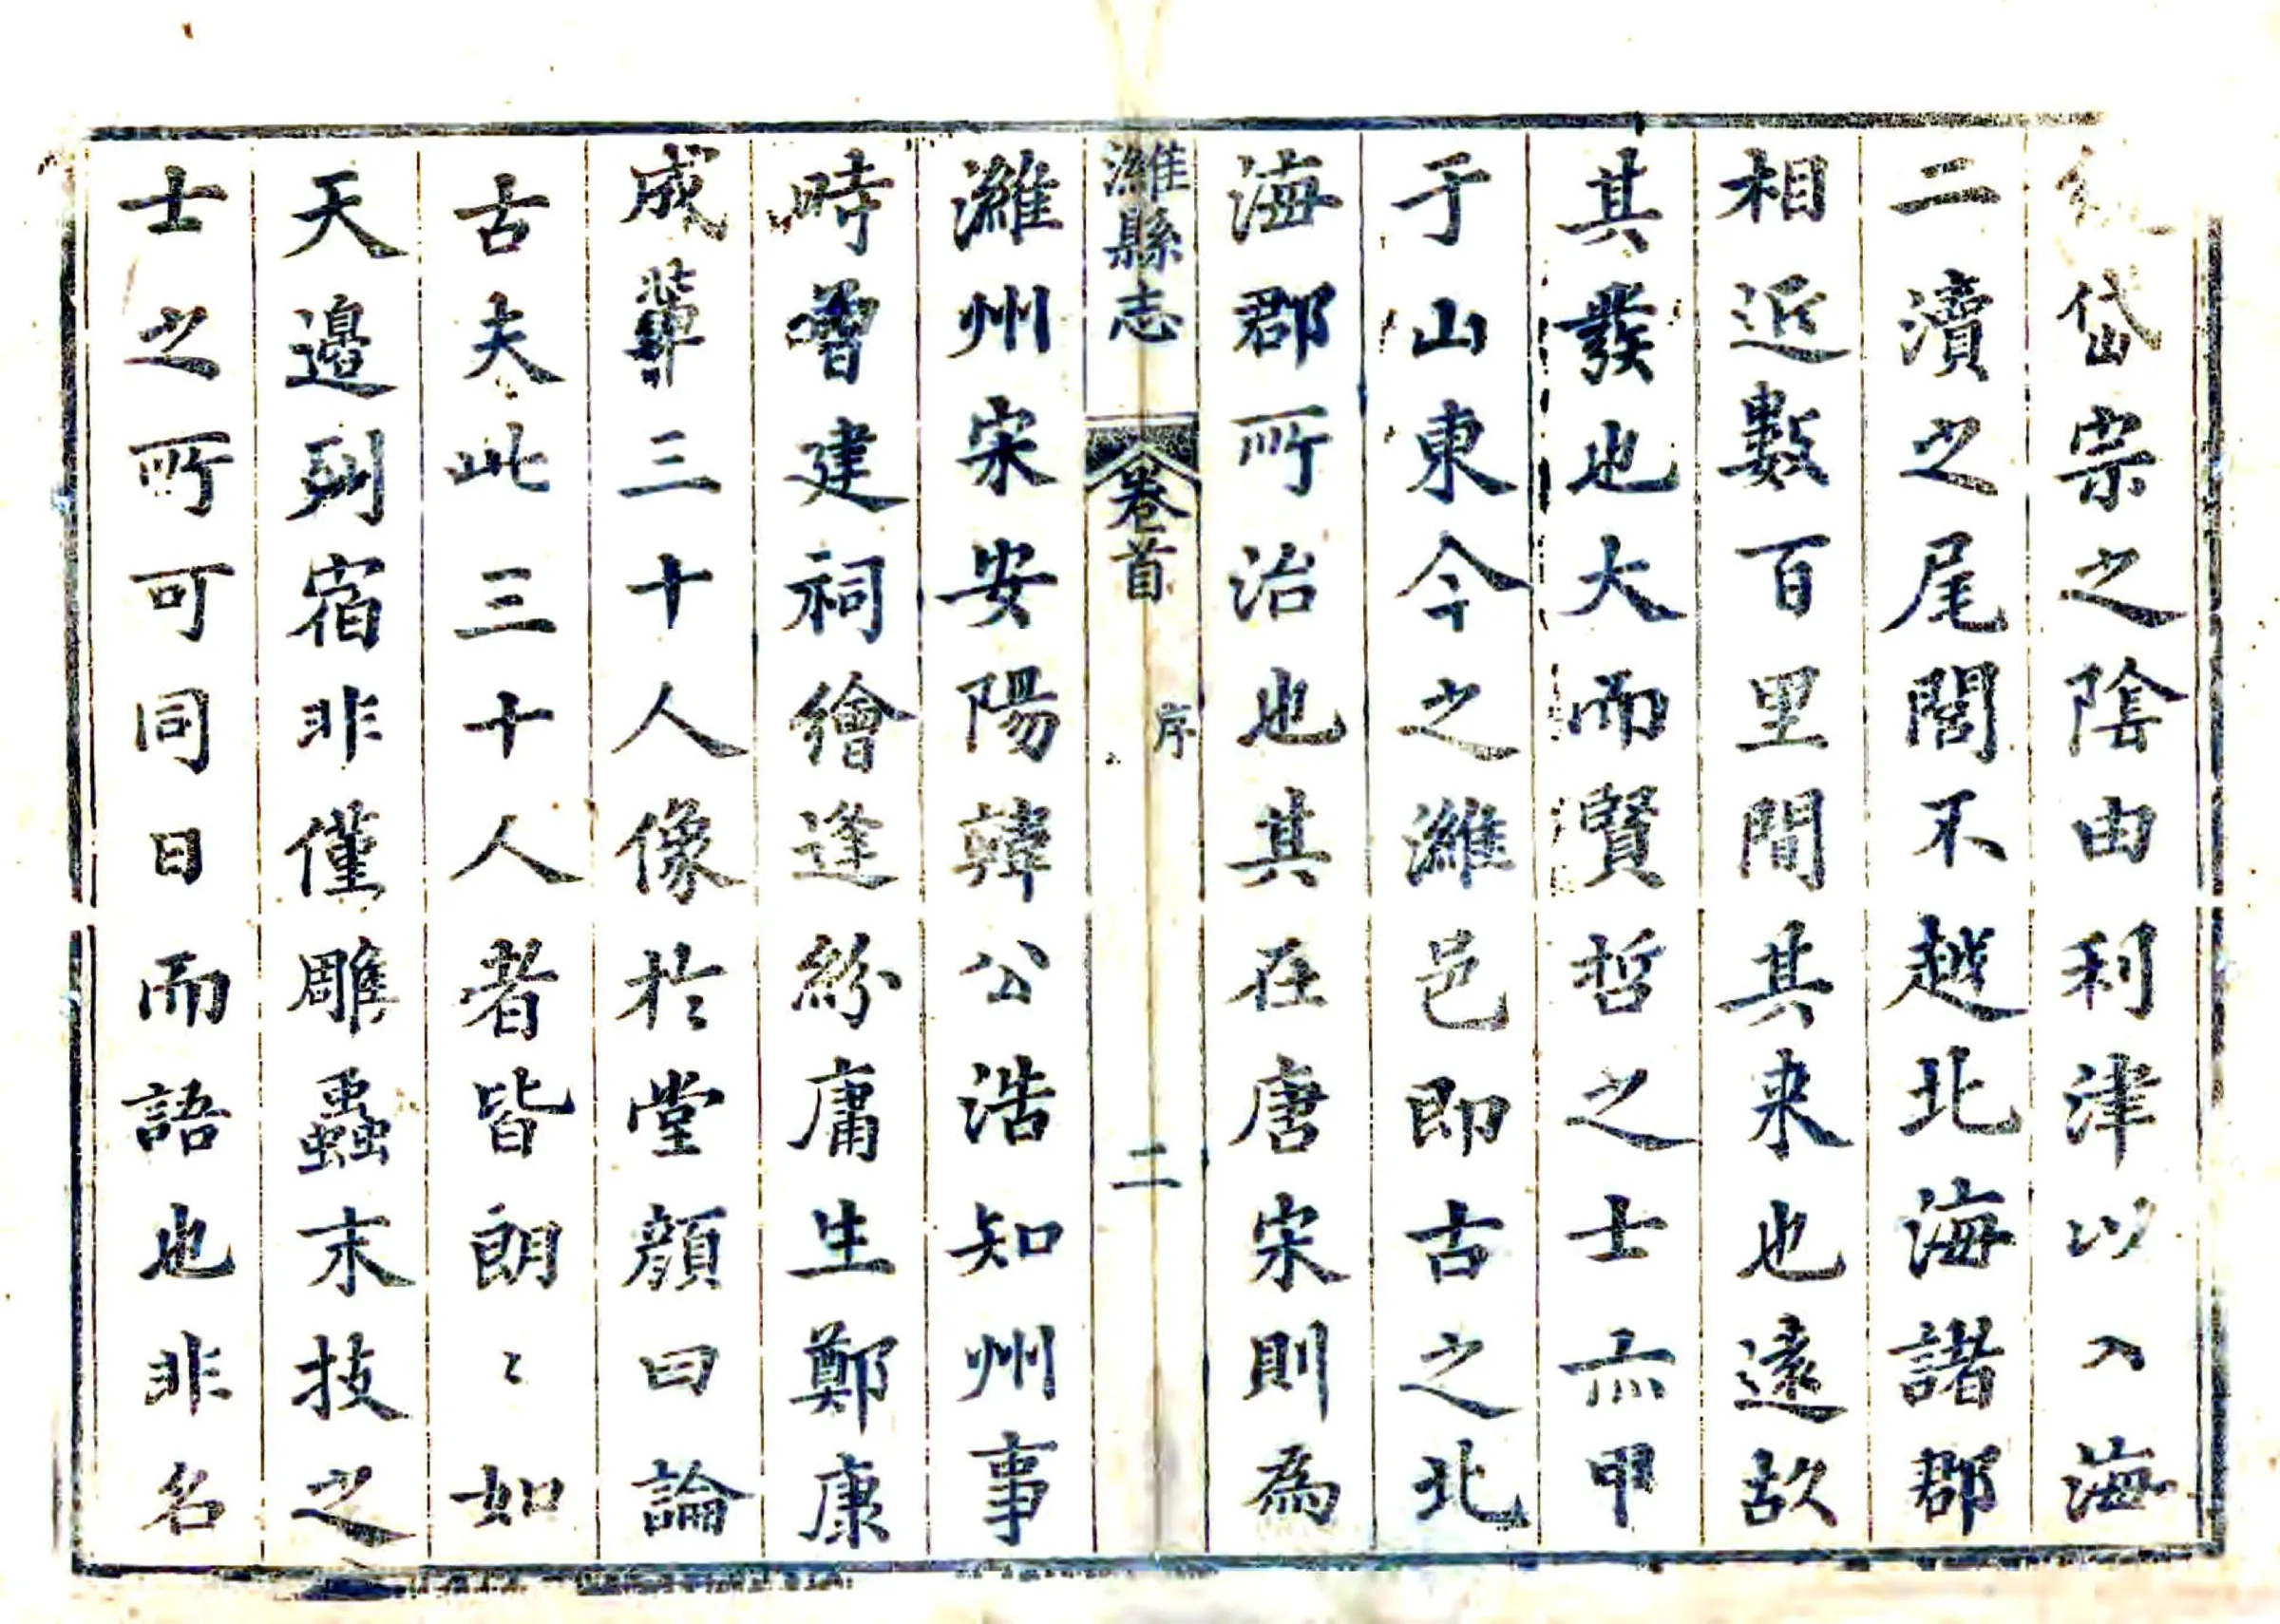 岱宗之陰由利津以入海
二瀆之尾閭不越北海諸郡
相近數百里間其来也遠故
其發也大而賢哲之士亦甲
于山東今之濰邑即古之北
海郡所治也其在唐宋則為
濰縣志
卷首
序
二
濰州宋安陽韓公浩知州事
時曾建祠繪逢紛庸生鄭康
成輩三十人像於堂顔曰論
古夫此三十人者皆朗〻如
天邉列宿非僅雕蟲末技之
士之所可同日而語也非名